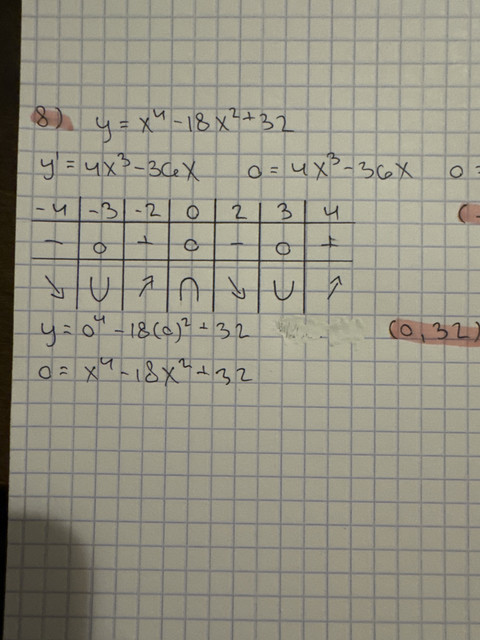 8) y = x⁴ - 18x² + 32
y' = 4x³ - 36x 0 = 4x³ - 36x 0 =
-4 | -3 | -2 | 0 | 2 | 3 | 4 (-
- | 0 | + | 0 | - | 0 | +
↘ | ∪ | ↗ | ∩ | ↘ | ∪ | ↗
y = 0⁴ - 18(0)² + 32 (0, 32)
0 = x⁴ - 18x² + 32